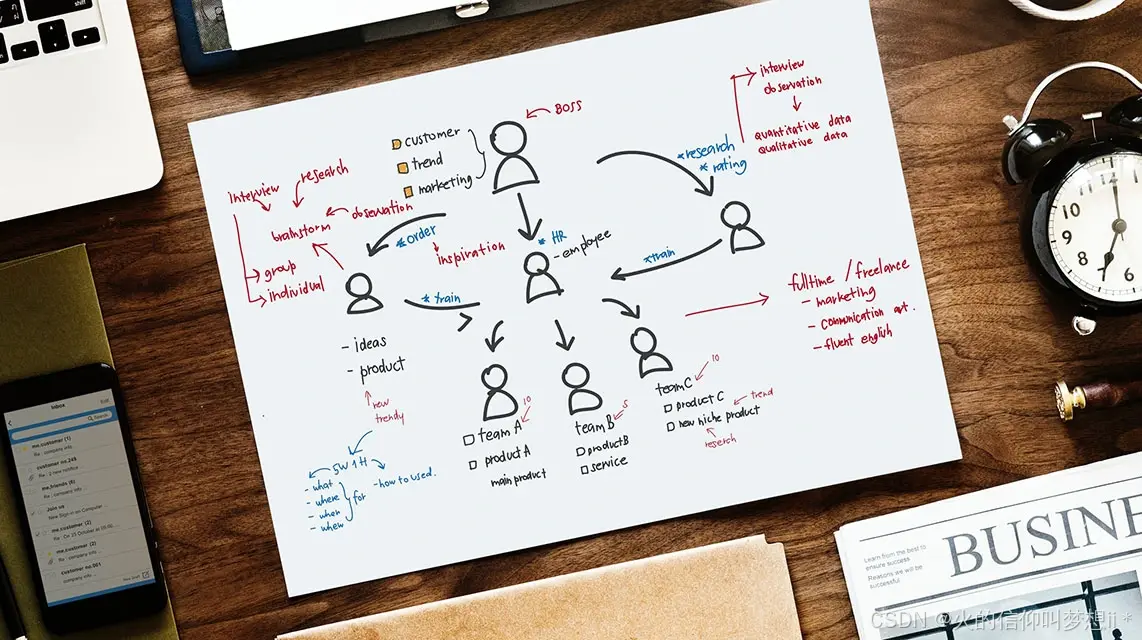 BOSS
customer
trend
marketing
interview
observation
quantitative data
qualitative data
*research
*rating
interview
research
observation
brainstorm
group
individual
*order
inspiration
* HR
- employee
*train
*train
- ideas
- product
new
trendy
5W 1H
- what
- where
- when
for
- how to used.
10
team A
product A
main product
5
team B
product B
service
10
team C
product C
trend
new niche product
research
fulltime / freelance
- marketing
- communication art.
- fluent english
Inbox
Edit
Search
me.customer (1)
Re : company info ...
customer no.246
Re : 2 new notifica
me.friends (6)
Re : company info ...
Join us
New Sign-in on Computer
me.customer. (2)
me.customer (2)
Re : company info ...
customer no.061
company info ...
10
9
8
7
6
5
4
3
2
1
Learn from the best to
ensure success
Reasons we will be
successful
BUSINE
CSDN @火的信仰叫梦想ji *